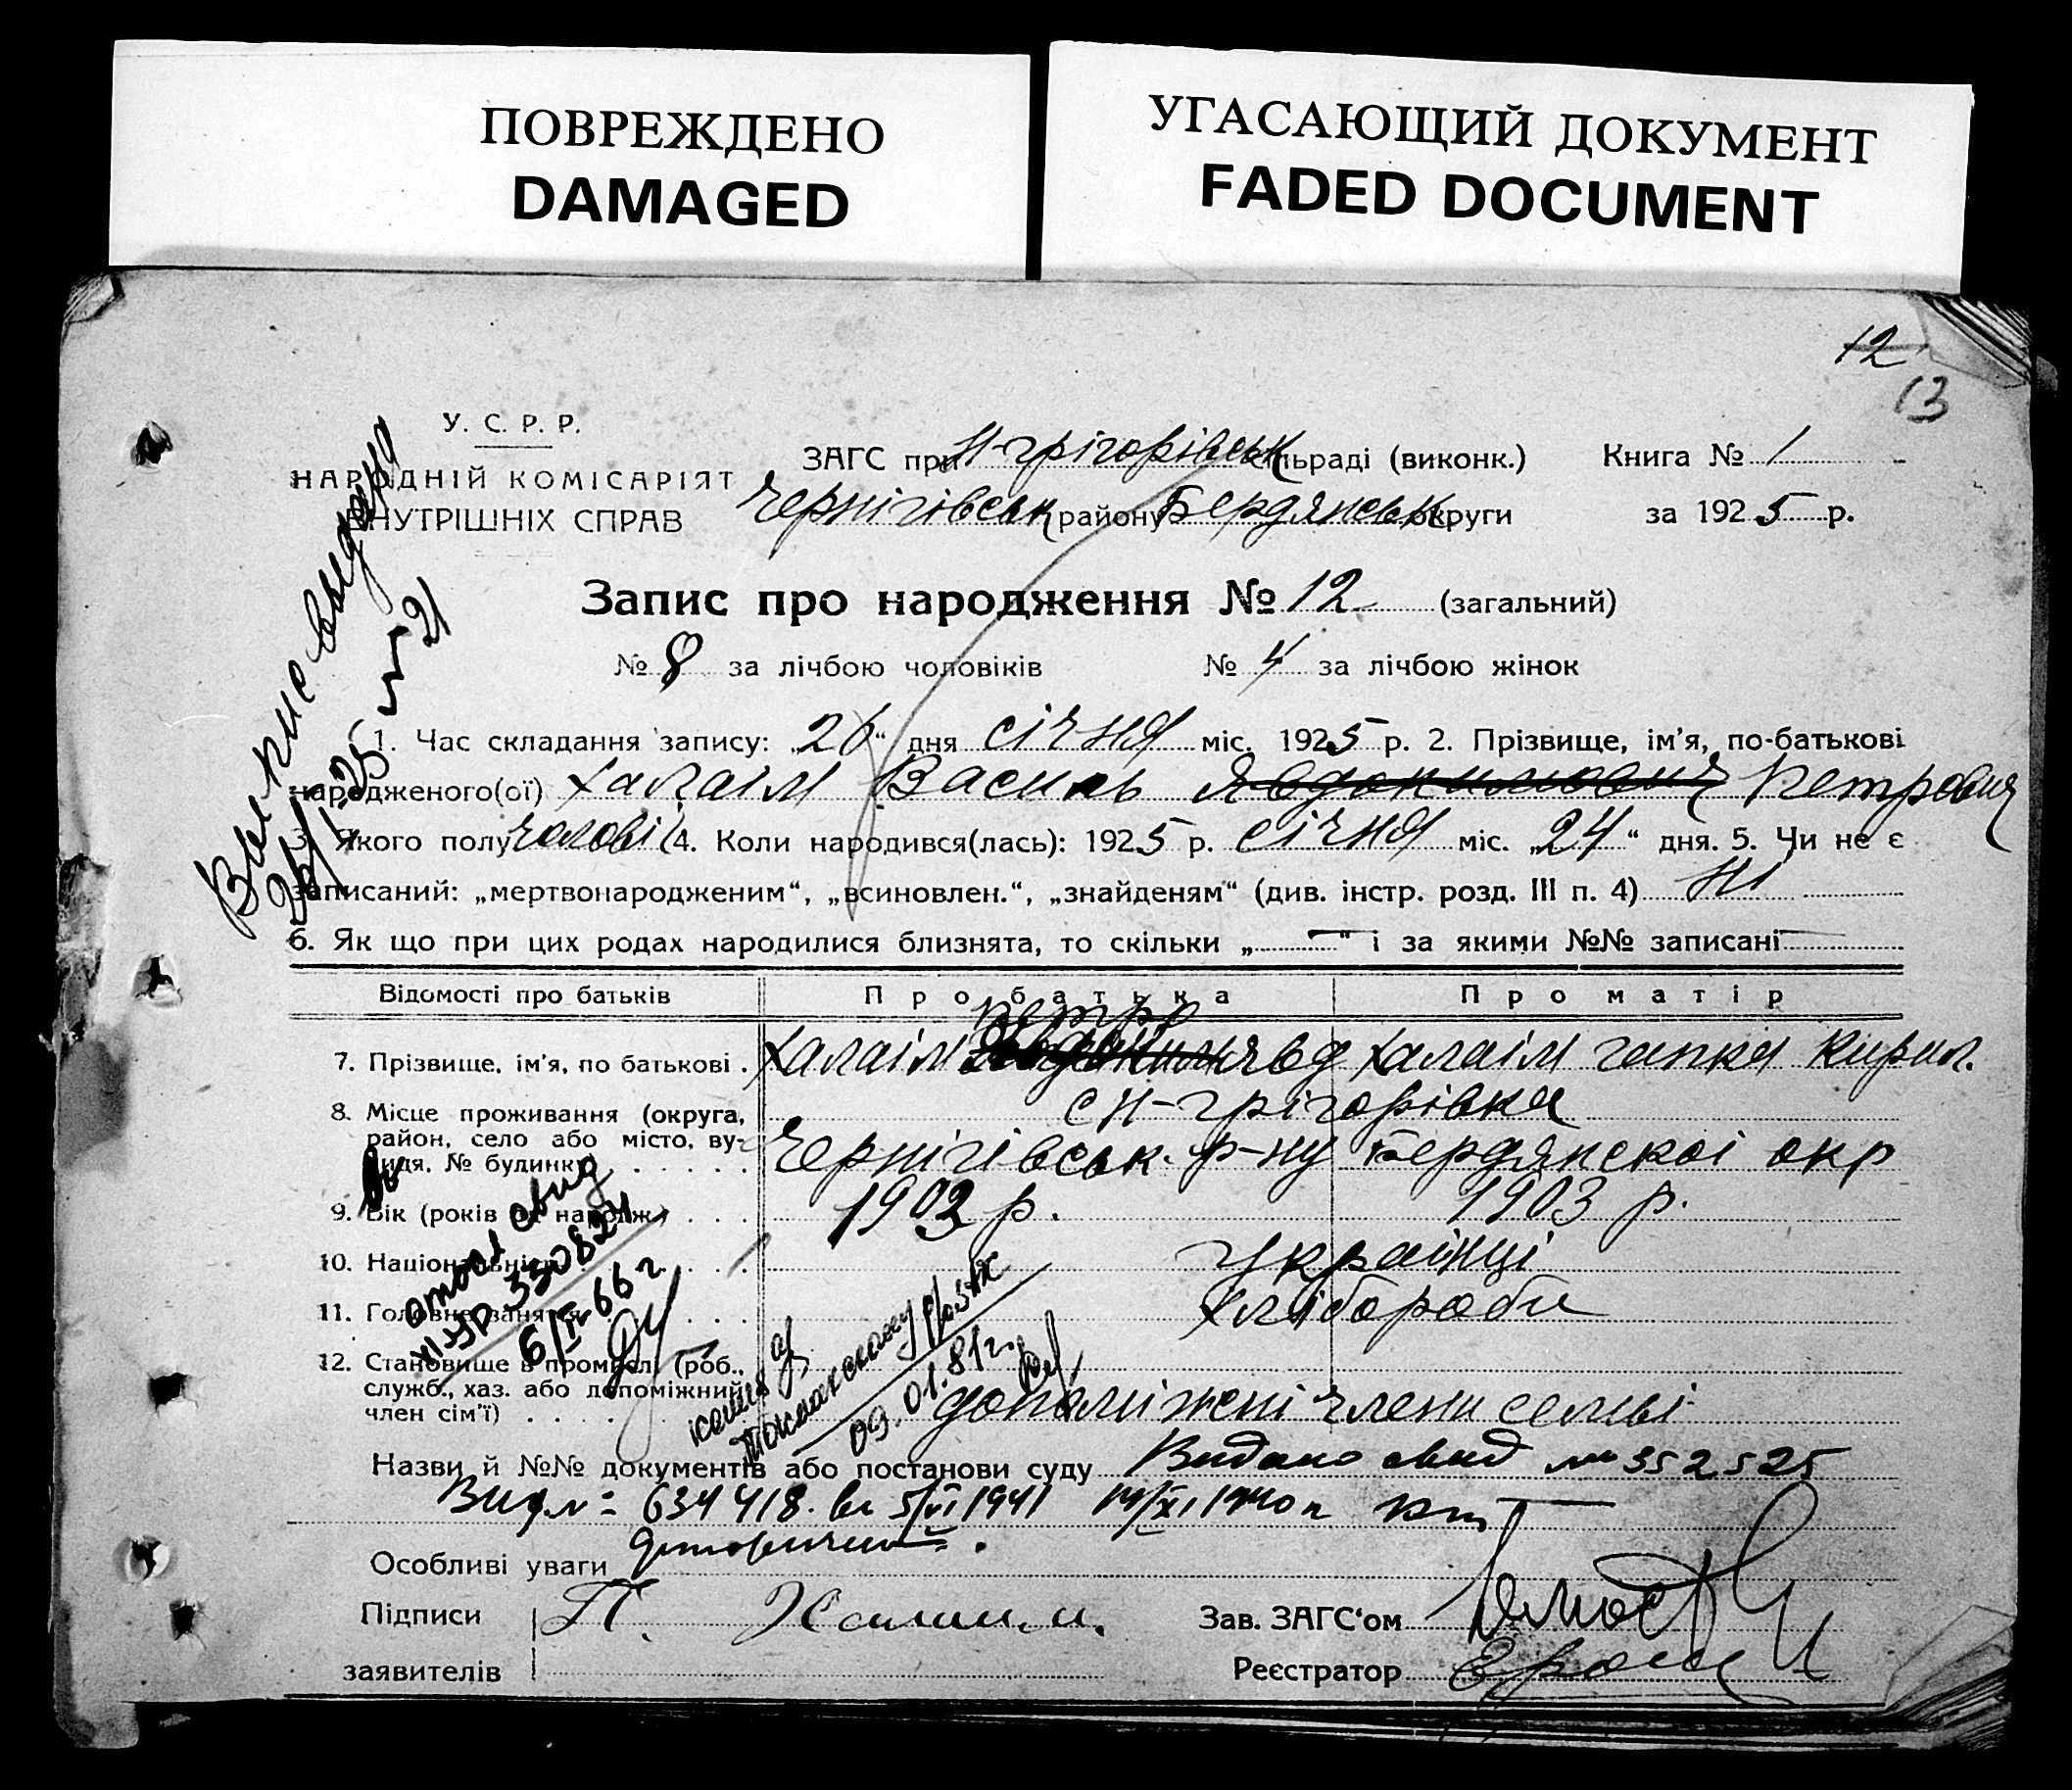 ПОВРЕЖДЕНО
DAMAGED
УГАСАЮЩИЙ ДОКУМЕНТ
FADED DOCUMENT
12
13
У. С. Р. Р.
НАРОДНІЙ КОМІСАРІЯТ
ВНУТРІШНІХ СПРАВ
ЗАГС при Н-Грігорівськ сільраді (виконк.) Книга № 1
Чернігівськ району Бердянськ округи за 1925 р.
Запис про народження № 12 (загальний)
№ 8 за лічбою чоловіків № 4 за лічбою жінок
1. Час складання запису: „26“ дня січня міс. 1925 р. 2. Прізвище, ім'я, по-батькові
народженого(ої) Халаім Василь Явдокимович Петрович
3. Якого полу чолові 4. Коли народився(лась): 1925 р. січня міс. „24“ дня. 5. Чи не є
записаний: „мертвонародженим“, „всиновлен.“, „знайденям“ (див. інстр. розд. III п. 4) ні
6. Як що при цих родах народилися близнята, то скільки „ — “ і за якими №№ записані —
Відомості про батьків Про батька Про матір
Петро
7. Прізвище, ім'я, по батькові . Халаім Явд Халаім Гапка Кирил.
8. Місце проживання (округа, с Н-Грігорівка
район, село або місто, ву-
лиця, № будинку) . . . . . Чернігівськ. р-ну Бердянскоі окр
9. Вік (років од народж.) . . . 1902 р. 1903 р.
10. Національність . . . . Украінці
11. Головне заняття . . . . Хлібороби
12. Становище в промислі (роб.,
служб., хаз. або допоміжний
член сім'ї) . . . . допоміжні члени семьі
Назви й №№ документів або постанови суду Видано свид № 352525
Вид № 634418 5/VI 1941 14/XI 1940 г
Особливі уваги
Підписи П. Халаим. Зав. ЗАГС'ом
заявителів Реєстратор
Выпис выдана
26/I-25 № 21
свид
ЯУР 330824
6/IV-66 г
09.01.81 г.